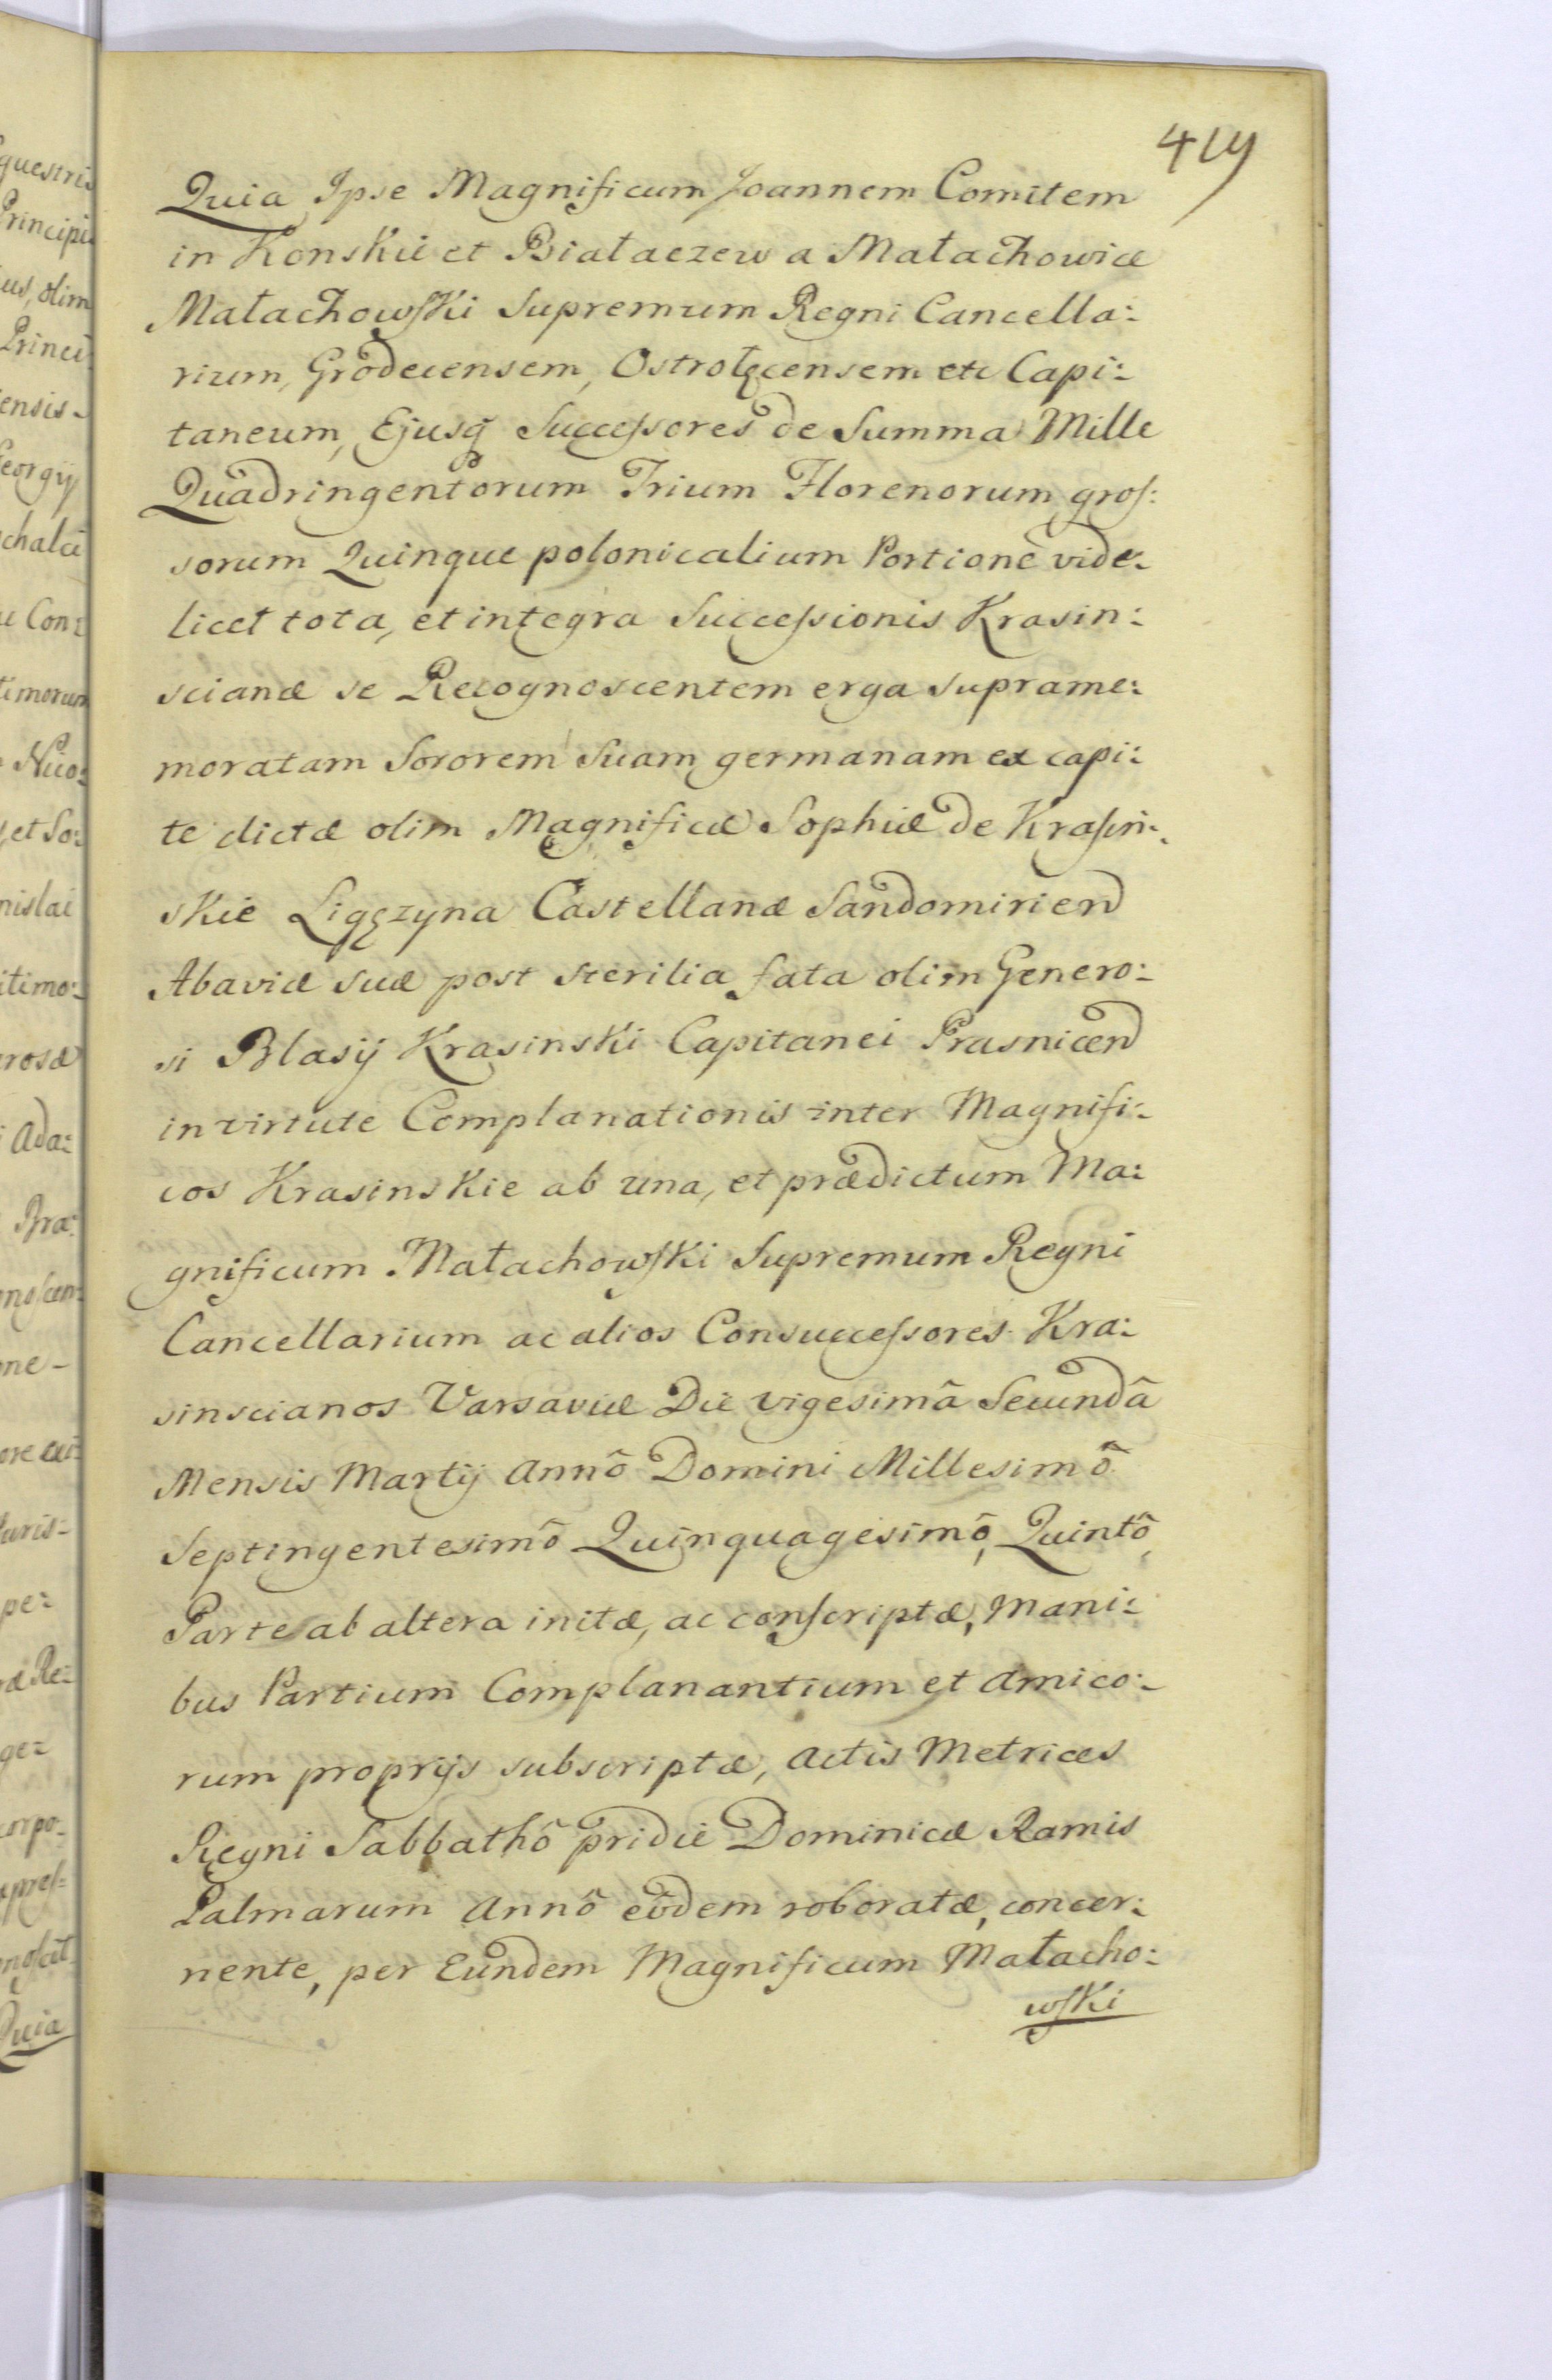 419
Quia Ipse Magnificum Joannem Comitem
in Konskie et Białaczew a Małachowice
Małachowski Supremum Regni Cancella:
rium, Grodecensem, Ostrołęcensem etc Capi:
taneum, Ejusq Successores de Summa Mille
Quadringentorum Trium Florenorum gros:
sorum Quinque polonicalium Portione vide:
licet tota, et integra Successionis Krasin:
scianæ se Recognoscentem erga suprame:
moratam Sororem Suam germanam ex capi:
te dictæ olim Magnificæ Sophiæ de Krasin:
skie Ligęzyna Castellanæ Sandomirien
Abaviæ suæ post sterilia fata olim Genero:
si Blasij Krasinski Capitanei Prasnicen
in virtute Complanationis inter Magnifi:
cos Krasinskie ab una, et prædictum Ma:
gnificum Małachowski Supremum Regni
Cancellarium ac alios Consuccessores Kra:
sinscianos Varsaviæ Die vigesimâ Secundâ
Mensis Martij Annô Domini Millesimô
Septingentesimô Quinquagesimô, Quintô,
Parte ab altera initæ, ac conscriptæ, Mani:
bus Partium Complanantium et Amico:
rum proprijs subscriptæ, Actis Metrices
Regni Sabbathô pridie Dominicæ Ramis
Palmarum Annô eôdem roboratæ, concer:
nente, per Eundem Magnificum Małacho:
wski